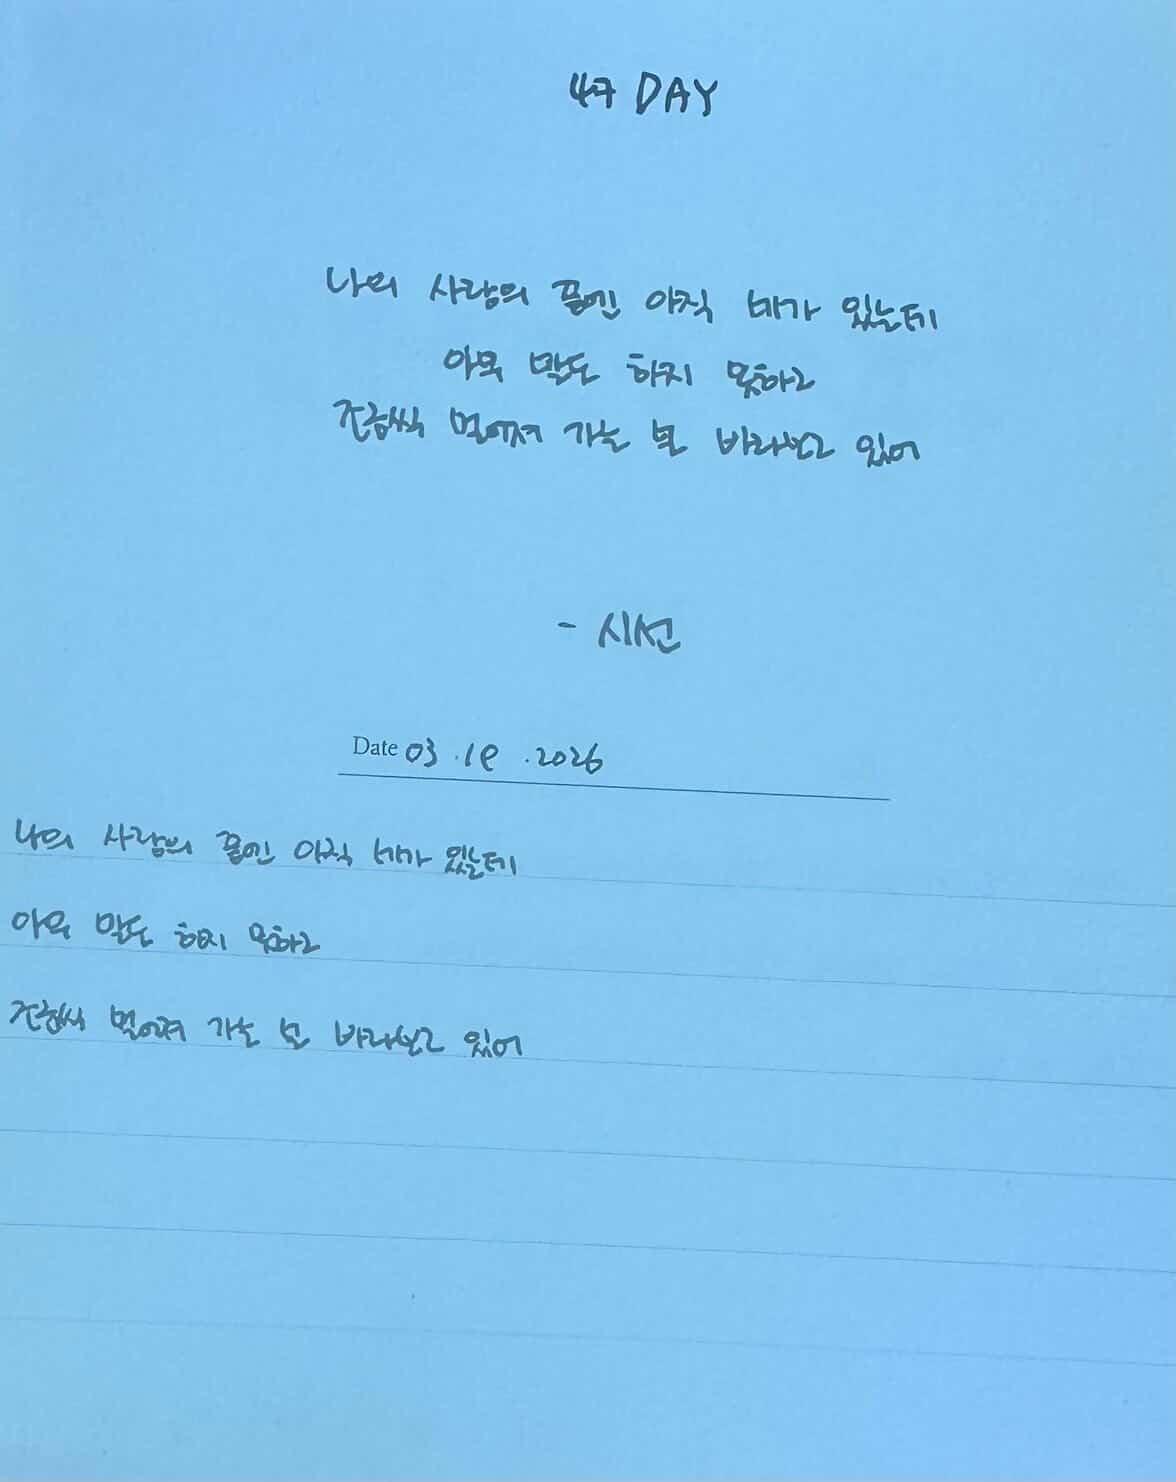 47 DAY
나의 사람의 품엔 아직 네가 있는데
아무 말도 하지 못하고
조금씩 멀어져 가는 널 바라보고 있어
- 시선
Date 03.19.2026
나의 사람의 품엔 아직 네가 있는데
아무 말도 하지 못하고
조금씩 멀어져 가는 널 바라보고 있어